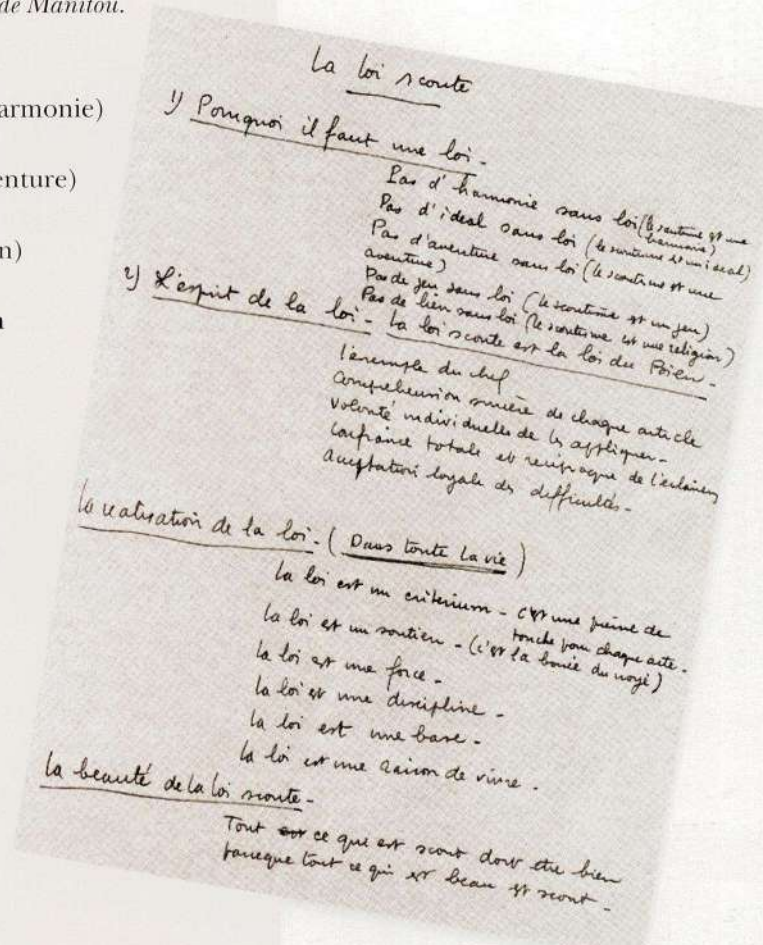 de Manitou.
armonie)
enture)
n)
n
La loi scoute
1) Pourquoi il faut une loi -
Pas d'harmonie sans loi (le scoutisme est une
harmonie)
Pas d'idéal sans loi (le scoutisme est un idéal)
Pas d'aventure sans loi (le scoutisme est une
aventure)
Pas de jeu sans loi (le scoutisme est un jeu)
Pas de lien sans loi (le scoutisme est une religion)
2) L'esprit de la loi - La loi scoute est la loi du Bien -
l'exemple du chef
compréhension sincère de chaque article
volonté individuelle de les appliquer -
confiance totale et réciproque de l'éclaireur
acceptation loyale des difficultés -
La réalisation de la loi - (Dans toute La vie)
La loi est un critérium - c'est une pierre de
touche pour chaque acte -
La loi est un soutien - (c'est la bouée du noyé)
La loi est une force -
La loi est une discipline -
La loi est une base -
La loi est une raison de vivre -
La beauté de la loi scoute -
Tout ce qui est scout doit être bien
parceque tout ce qui est beau est scout -